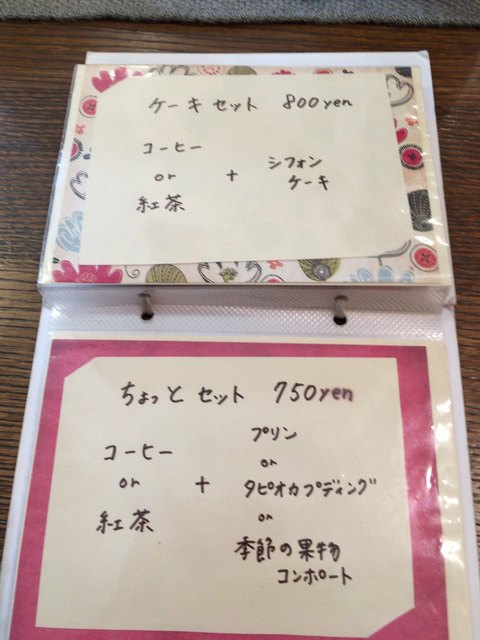 ケーキセット 800yen
コーヒー
or
紅茶
+
シフォン
ケーキ
ちょっとセット 750yen
コーヒー
or
紅茶
+
プリン
or
タピオカプディング
or
季節の果物
コンポート